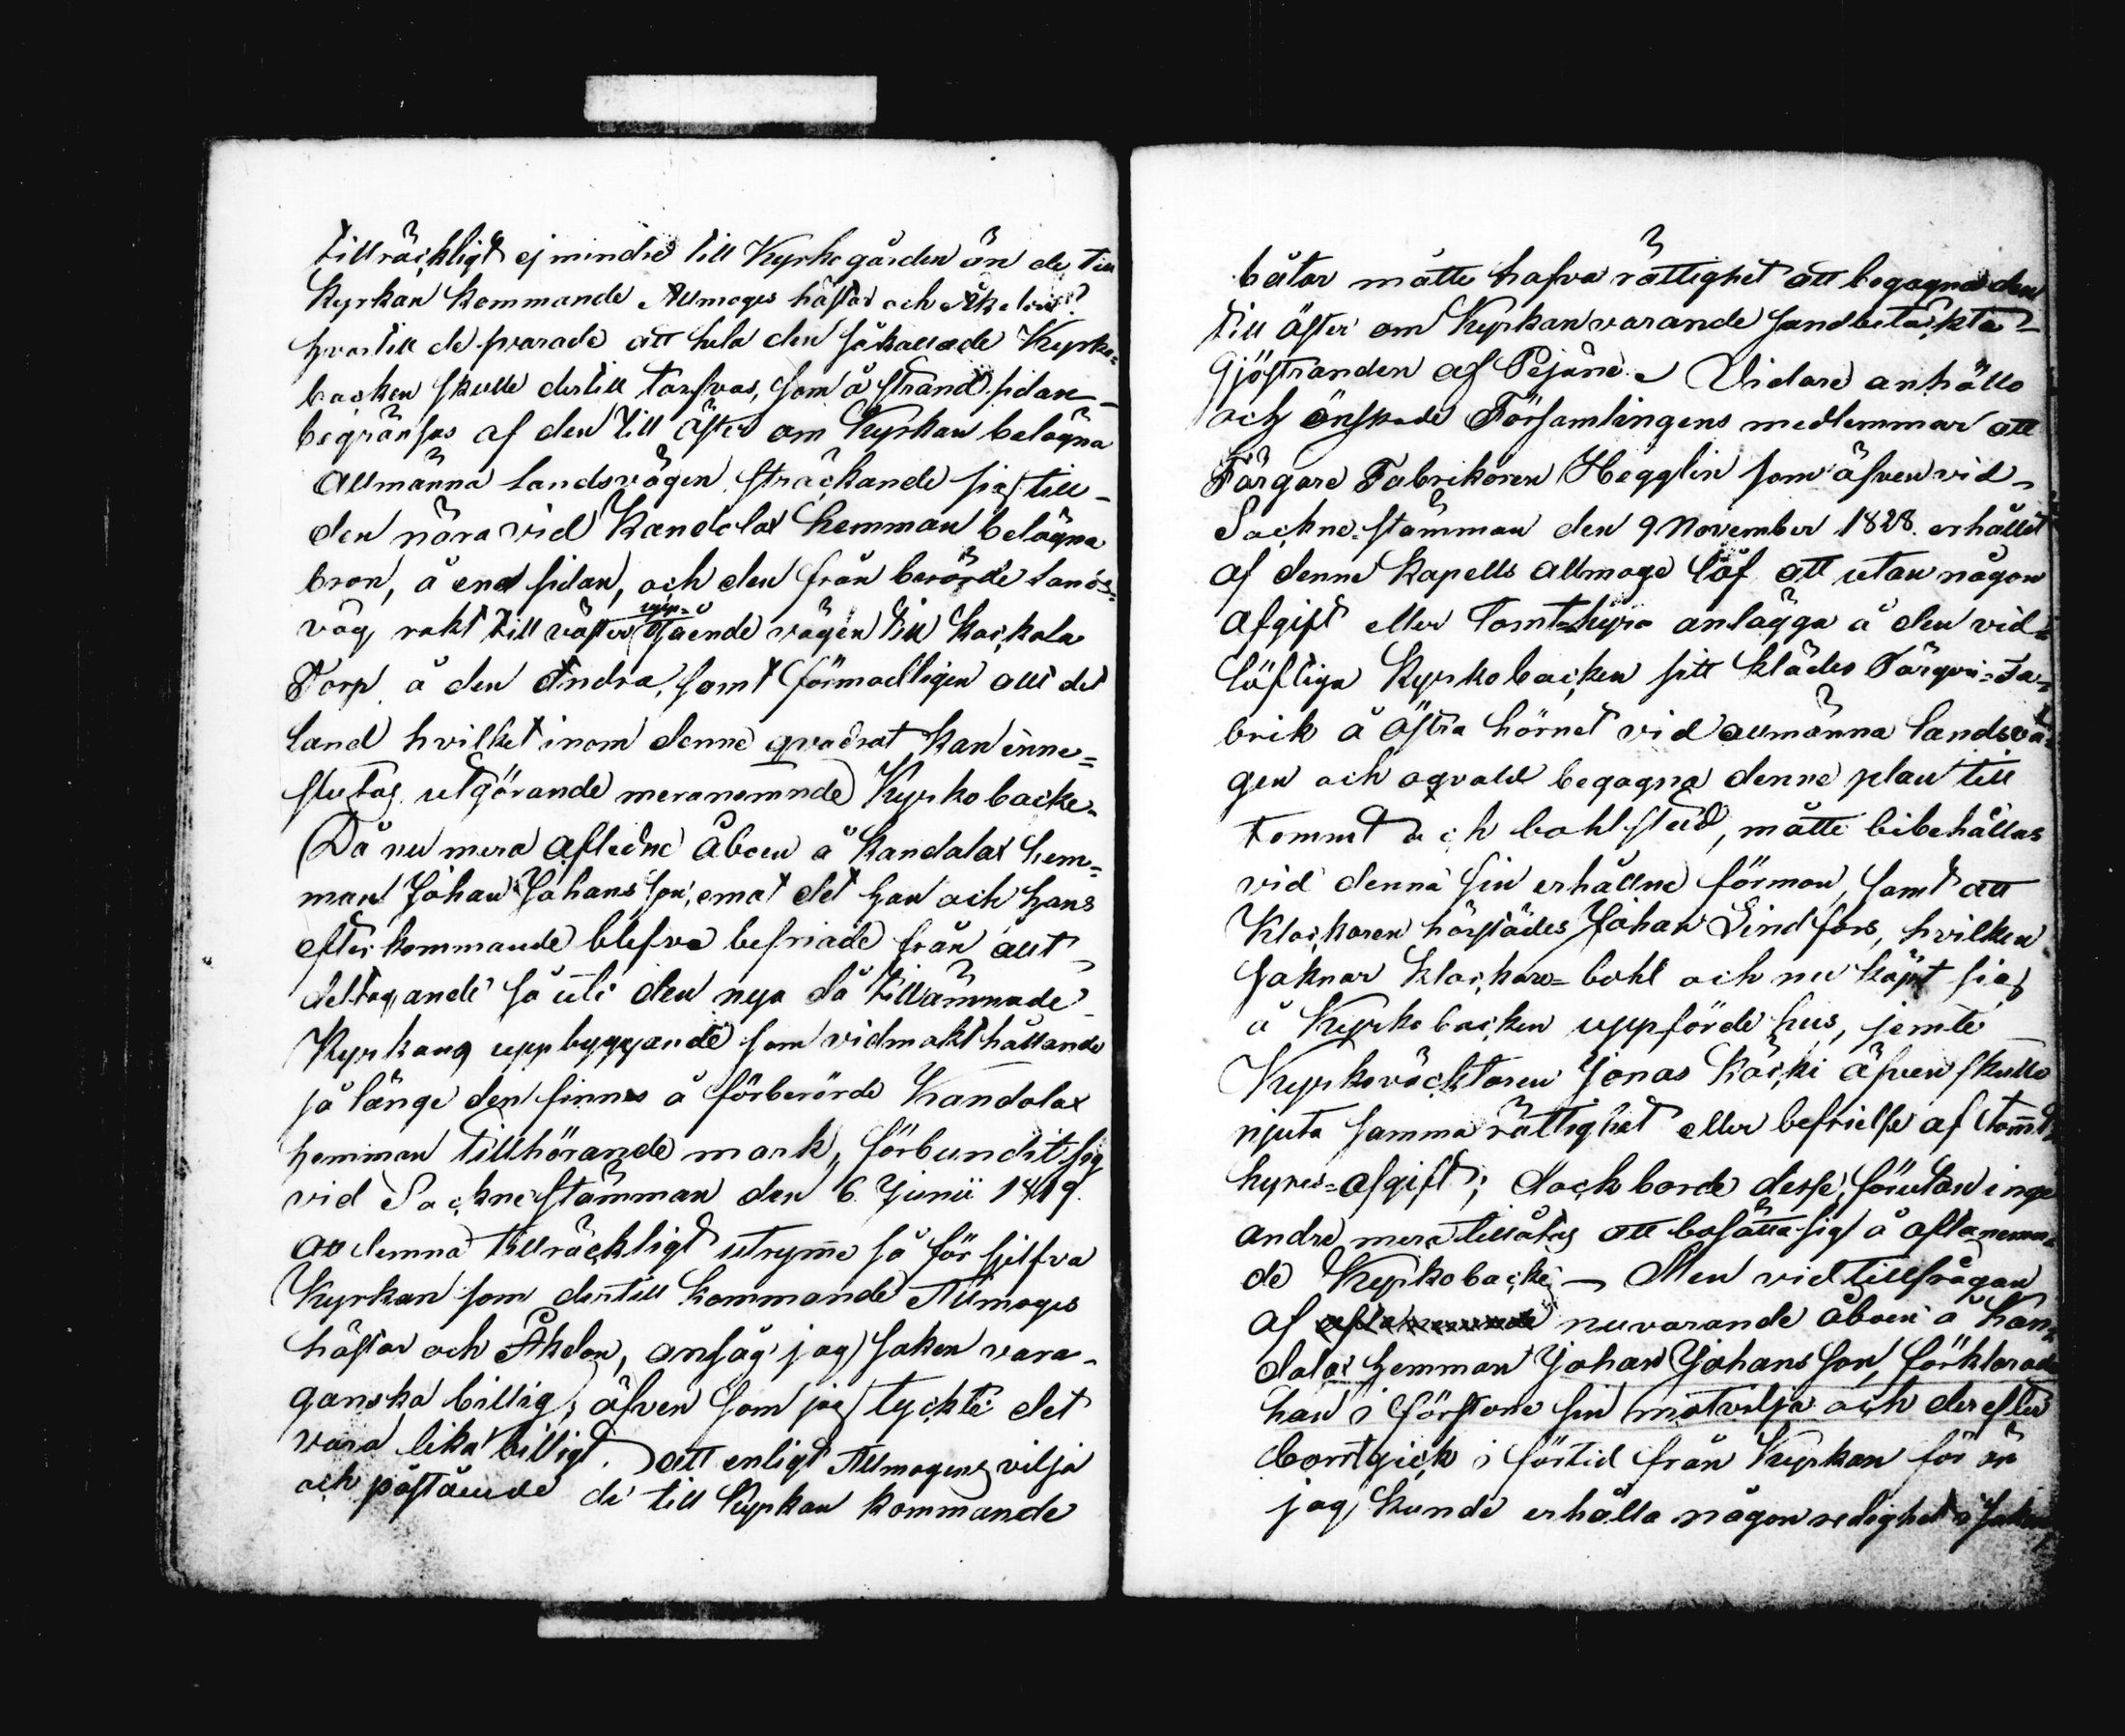 tillräckligt ej mindre till Kyrkogården än de till
Kyrkan kommande Allmoges hästar och Åkedon?
hvartill de svarade att hela den så kallade Kyrko=
backen skulle dertill tarfvas, som å strand sidan
begränsas af den till öster om Kyrkan belägna
allmänna landsvägen sträckande sig till
den nära vid Kandolax hemman belägna
bron, å ena sidan, och den från berörde lands=
väg rakt till väster upp=gående vägen till Kackola
Torp å den Andra, samt förmodligen allt det
land hvilket inom denne qvadrat kan inne=
slutas utgörande meranämnde Kyrkobacke.
Då nu mera aflidne Åboen å Kandolax hem=
man Johan Johansson, emot det han och hans
efterkommande blefve befriade från allt
deltagande så uti den nya då tillämnade
Kyrkans uppbyggande som vidmakthållande
så länge den finnes å förberörde Kandolax
hemman tillhörande mark, förbundit sig
vid Sockne stämman den 6 Junii 1819
att lemna tillräckligt utrymme så för sjelfva
Kyrkan som dertill kommande Allmoges
hästar och Åkedon, ansåg jag saken vara
ganska billig, äfven som jag tyckte det
vara lika billigt att enligt Allmogens vilja
och påstående de till Kyrkan kommande
båtar måtte hafva rättighet att begagna den
till öster om Kyrkan varande sandbetäckta
Sjöstranden af Pejäne. Vidare anhöllo
och önskade Församlingens medlemmar att
Färgare Fabrikören Hegglin som äfven vid
Sockne=stämman den 9 November 1828. erhållit
af denne Kapells allmoge löf att utan någon
afgift eller Tomt=hyra anlägga å den vid=
löftiga Kyrkobacken sitt klädes Färgeri=Fa=
brik å östra hörnet vid allmänna landsvä=
gen och oqvald begagna denne plan till
tomt och bohlstad, måtte bibehållas
vid denna sin erhållne förmon, samt att
Klockaren härstädes Johan Lindfors, hvilken
saknar Klockare=bohl och nu köpt sig
å Kyrkobacken uppförde hus, jemte
Kyrkoväcktaren Jonas Käcki äfven skulle
njuta samma rättighet eller befrielse af tomt
hyres=afgift; dock borde desse, förutan inge
andre mera tillåtas att bosätta sig å oftanemn=
de Kyrkobacke. Men vid tillfrågan
af nuvarande åboen å Kan=
dolax hemman Johan Johansson, förklarade
han i förstone sin motvilja och derefter
bortgick i förtid från Kyrkan för än
jag kunde erhålla någon redighet i saken,